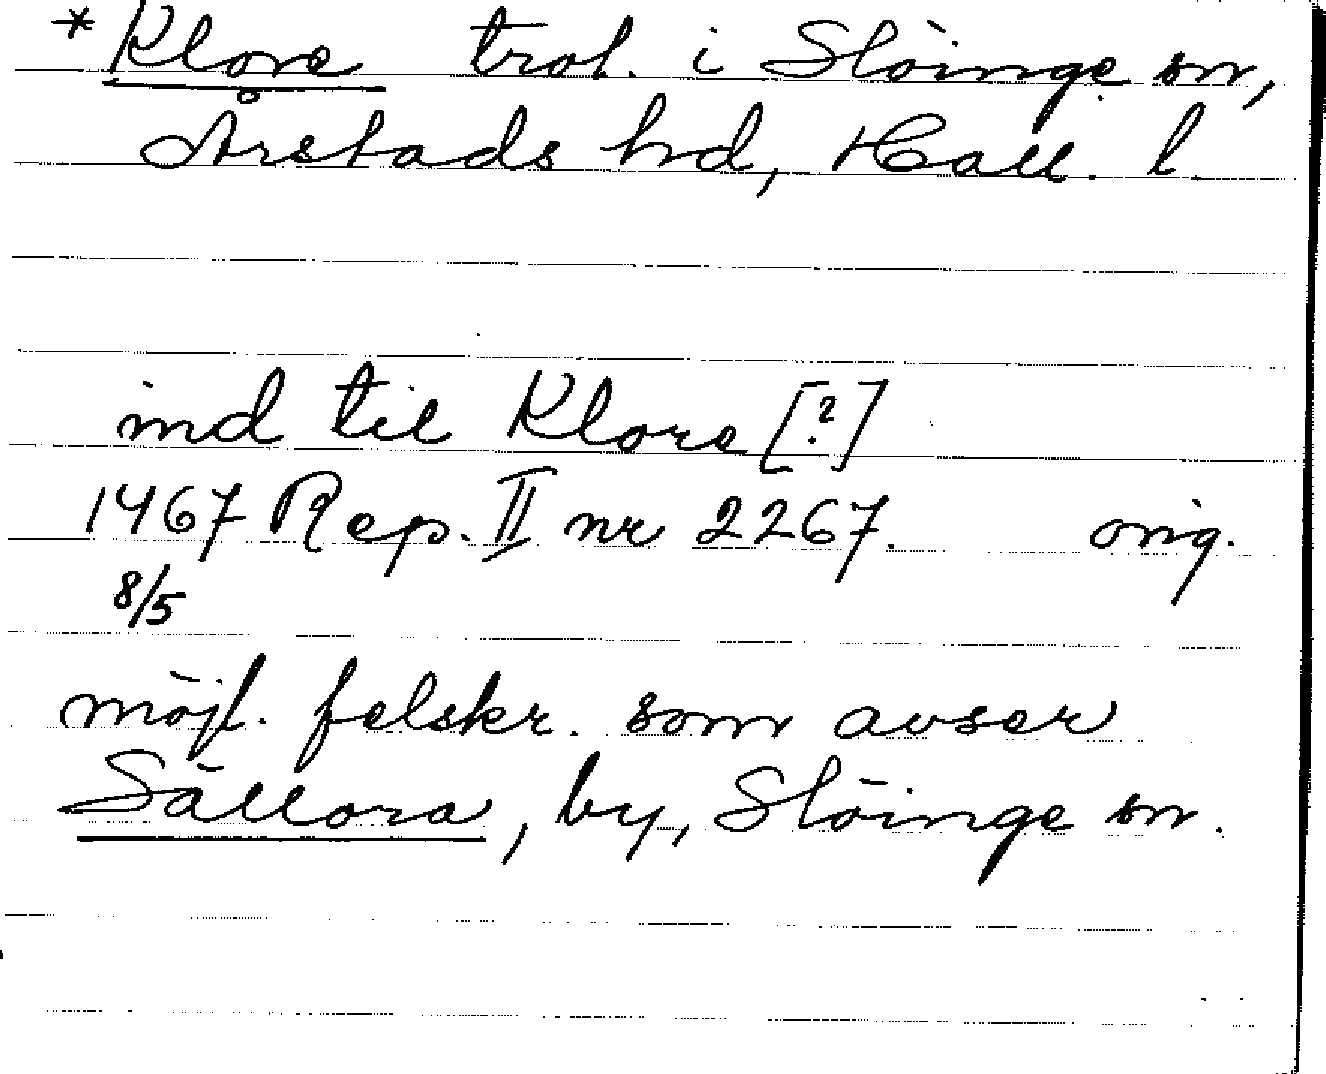 *Klore trol. i Slöinge sn,
Årstads hd, Hall. l.
ind til Klore [?]
1467 Rep. II nr 2267. orig.
8/5
möjl. felskr. som avser
Sällora, by, Slöinge sn.